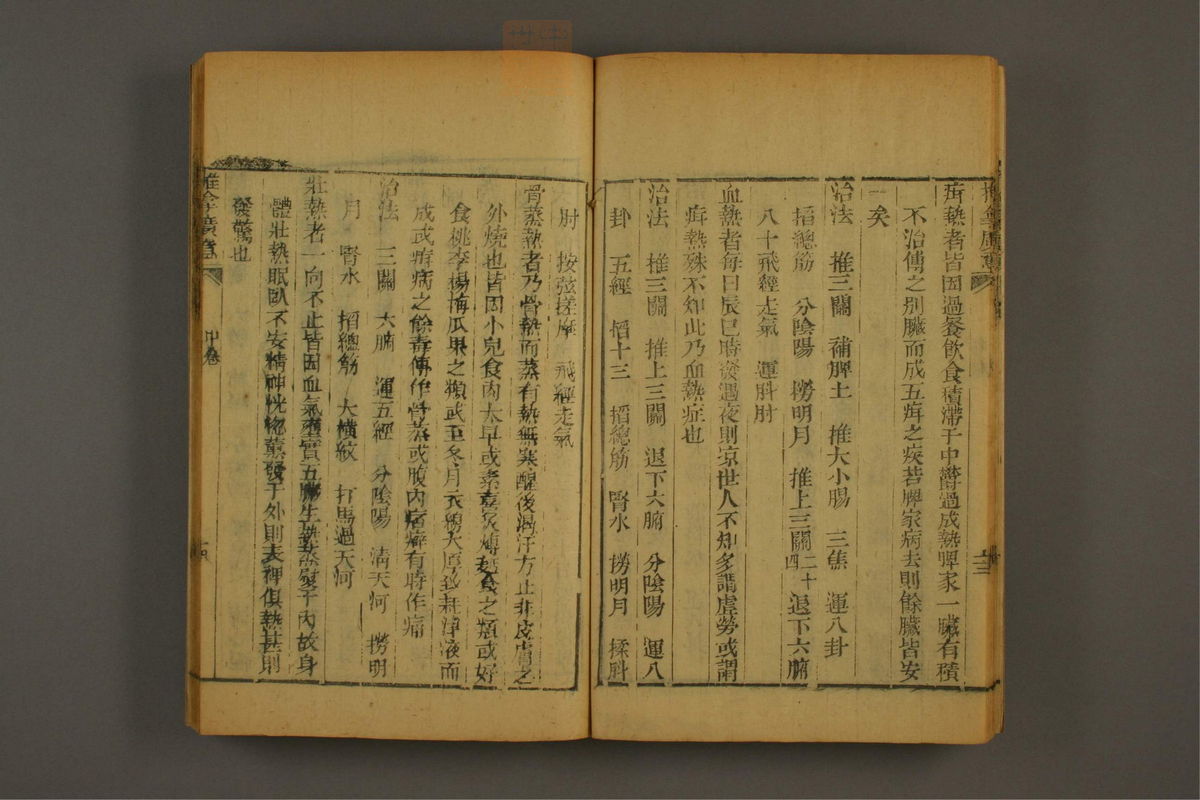 疳熱者皆因過餐飲食積滯于中鬱過成熱脾家一臟有積
不治傳之别臟而成五疳之疾若脾家病去則餘臟皆安
矣
治法　推三關　補脾土　推大小腸　三焦　運八卦
掐總筋　分陰陽　撈明月　推上三關二十四退下六腑
八十飛經走氣　運㪷肘
血熱者每日辰巳時發遇夜則凉世人不知多謂虛勞或謂
疳熱殊不知此乃血熱症也
治法　推三關　推上三關　退下六腑　分陰陽　運八
卦　五經　掐十三　掐總筋　腎水　撈明月　揉㪷
肘　按弦搓摩　飛經走氣
骨蒸熱者乃骨熱而蒸有熱無寒醒後渴汗方止非皮膚之
外燒也皆因小兒食肉太早或素喜炙煿麵食之類或好
食桃李楊梅瓜果之類或至冬月衣綿太厚致耗津液而
成或疳病之餘毒傳作骨蒸或腹內痞癖有時作痛
治法　三關　六腑　運五經　分陰陽　清天河　撈明
月　腎水　掐總筋　大橫紋　打馬過天河
壯熱者一向不止皆因血氣壅實五臟生熱蒸慰于內故身
體壯熱眠臥不安精神恍惚薰發于外則表裡俱熱甚則
發驚也
推拿廣意
中卷